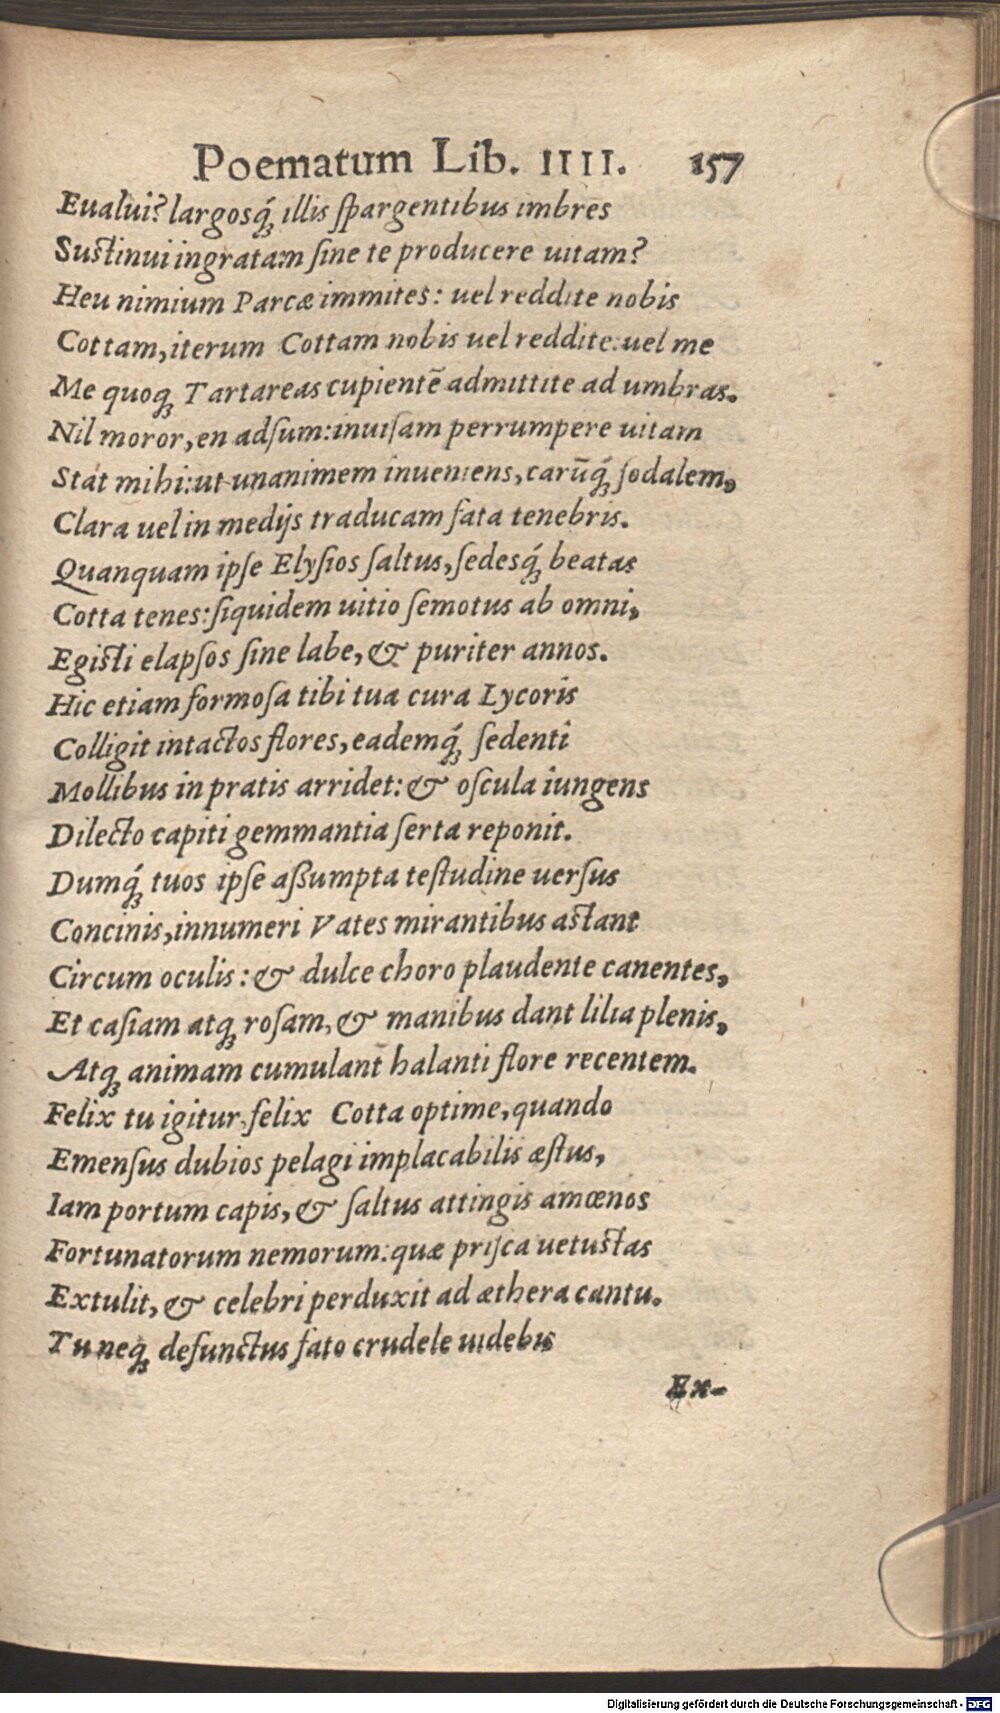 Poematum Lib. IIII. 157
Eualui? largosq́ꝫ illis ſpargentibus imbres
Suſtinui ingratam ſine te producere uitam?
Heu nimium Parcæ immites: uel reddite nobis
Cottam, iterum Cottam nobis uel reddite: uel me
Me quoqꝫ Tartareas cupientē admittite ad umbras.
Nil moror, en adſum: inuiſam perrumpere uitam
Stat mihi: ut unanimem inueniens, carūq́ꝫ ſodalem,
Clara uel in medijs traducam fata tenebris.
Quanquam ipſe Elyſios ſaltus, ſedesq́ꝫ beatas
Cotta tenes: ſiquidem uitio ſemotus ab omni,
Egiſti elapſos ſine labe, & puriter annos.
Hic etiam formoſa tibi tua cura Lycoris
Colligit intactos flores, eademq́ꝫ ſedenti
Mollibus in pratis arridet: & oſcula iungens
Dilecto capiti gemmantia ſerta reponit.
Dumq́ꝫ tuos ipſe aßumpta teſtudine uerſus
Concinis, innumeri Vates mirantibus aſtant
Circum oculis: & dulce choro plaudente canentes,
Et caſiam atqꝫ roſam, & manibus dant lilia plenis,
Atqꝫ animam cumulant halanti flore recentem.
Felix tu igitur, felix Cotta optime, quando
Emenſus dubios pelagi implacabilis æſtus,
Iam portum capis, & ſaltus attingis amœnos
Fortunatorum nemorum: quæ priſca uetuſtas
Extulit, & celebri perduxit ad æthera cantu.
Tu neq́ꝫ defunctus fato crudele uidebis
Ex-
Digitalisierung gefördert durch die Deutsche Forschungsgemeinschaft - DFG